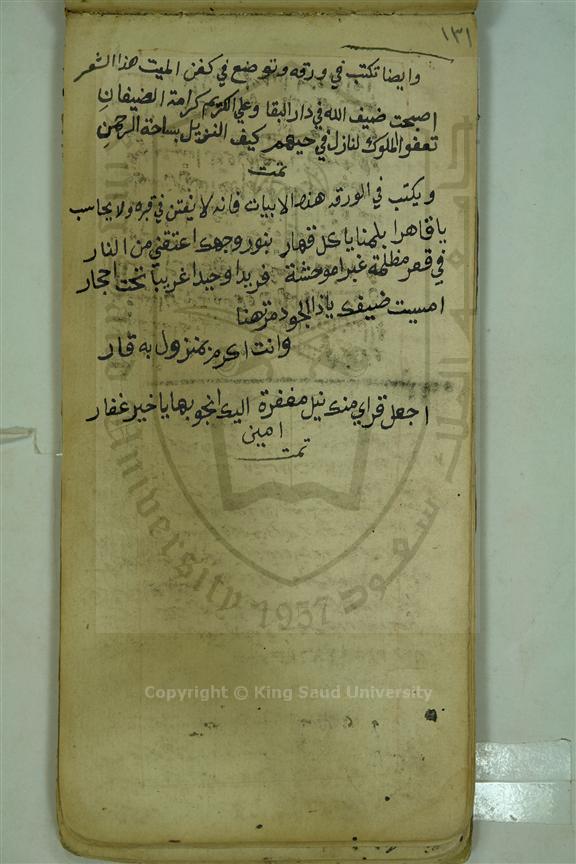 ١٣١
وايضا تكتب في ورقه وتوضع في كفن الميت هذا الشعر
اصبحت ضيف الله في دار البقا وعلي الكريم كرامة الضيفان
تعفوا الملوك لنازل في حيهم كيف النزيل بساحة الرحمن
تمت
ويكتب في الورقه هذه الابيات فانه لا يفتن في قبره ولا يحاسب
يا قاهرا بالمنايا كل قهار بنور وجهك اعتقني من النار
في قعر مظلمة غبرا موحشة فريدا وحيدا غريبا تحت احجار
امسيت ضيفك ياذا الجود مرتهنا
وانت اكرم منزول به قار
اجعل قراي منك نيل مغفرة اليك انجو بها يا خير غفار
امين
تمت
جامعة الملك سعود
University 1957
Copyright © King Saud University